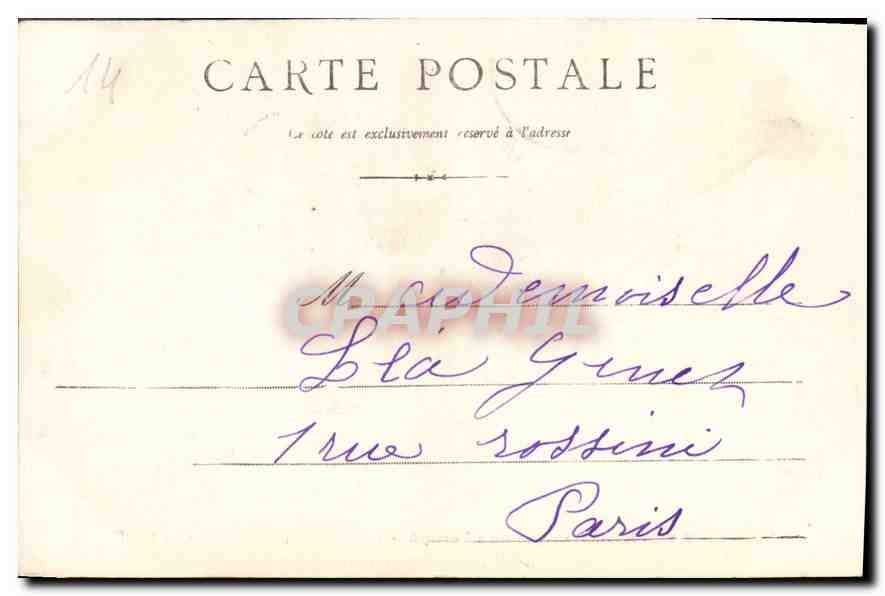 14
CARTE POSTALE
Ce côté est exclusivement réservé à l'adresse
Mademoiselle
CPAPHIL
Léa
1 rue rossini
Paris